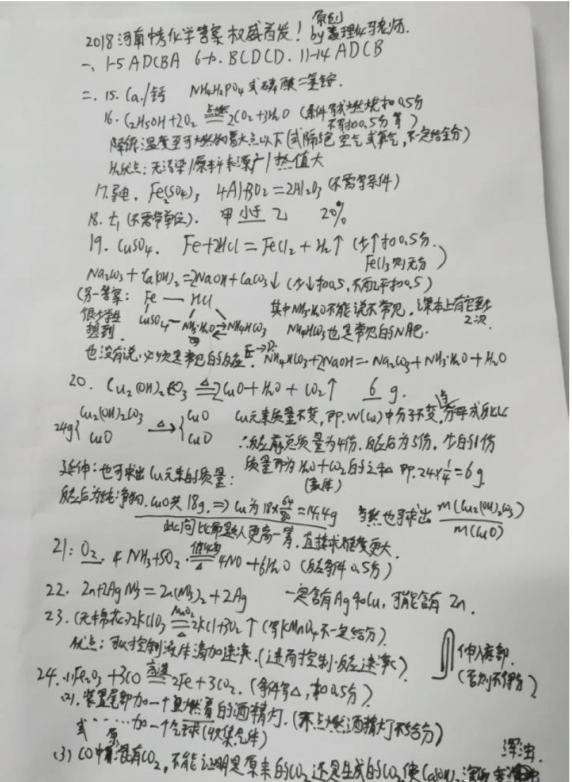 2018河南中考化学答案 权威首发! 原创 by 袁理化司老师.
一、1-5 ADCBA 6-10. BCDCD. 11-14 ADCB
二. 15. Ca./钙 NH₄H₂PO₄ 或磷酸二氢铵
16. C₂H₅OH+3O₂ 点燃 2CO₂+3H₂O (条件写成燃烧扣0.5分
不写扣0.5分等)
降低温度至可燃物的着火点以下(或隔绝空气或氧气,不一定给全分)
优点:无污染/原料来源广/热值大
17.导电. Fe₂(SO₄)₃ 4Al+3O₂=2Al₂O₃(不需写条件)
18. t₁(不需写单位). 甲小于乙 20%
19. CuSO₄. Fe+2HCl=FeCl₂+H₂↑ (少↑扣0.5分.
FeCl₃则无分)
Na₂CO₃+Ca(OH)₂=2NaOH+CaCO₃↓ (少↓扣0.5,不配平扣0.5)
(另一答案: Fe — HCl 其中NH₃·H₂O不能说不常见,课本上有它至少2次.
很少想想到. CuSO₄—NH₃·H₂O⇌NH₄HCO₃ NH₄HCO₃也是常见的N肥.
也没有说,必须是常见的反应. NH₄HCO₃+2NaOH=Na₂CO₃+NH₃·H₂O+H₂O
20. Cu₂(OH)₂CO₃ △ 2CuO+H₂O+CO₂↑ 6g.
24g{Cu₂(OH)₂CO₃ CuO △→ {CuO CuO Cu元素质量不变,即.W(Cu)中分子不变,分母成反比
∴反应前总质量为4份.反应后为3份.少的1份
质量即为H₂O+CO₂的之和 即.24×1/4=6g
延伸:也可求出Cu元素的质量:
反应后为纯净物.CuO共18g.⇒Cu为18×64/80=14.4g 当然也可求出 m(Cu₂(OH)₂CO₃)/m(CuO)
此问比命题人更高一筹,直接求难度更大.
21: O₂. 4NH₃+5O₂ 催化剂 △ 4NO+6H₂O (反应条件0.5分)
22. Zn+2AgNO₃=Zn(NO₃)₂+2Ag 一定含有Ag和Cu,可能含有Zn.
23.(无棉花)2KClO₃ MnO₂ △ 2KCl+3O₂↑(写KMnO₄不一定给分)
优点:可以控制液体滴加速率.(进而控制反应速率)
伸入底部.(否则不得分)
24.(1)Fe₂O₃+3CO 高温 2Fe+3CO₂.(条件写△,扣0.5分)
(2).装置尾部加一个点燃着的酒精灯.(不点燃酒精灯不给分)
或……加一个气球(收集气体)
(3)CO中混有CO₂,不能证明是原来的CO₂还是生成的CO₂使Ca(OH)₂